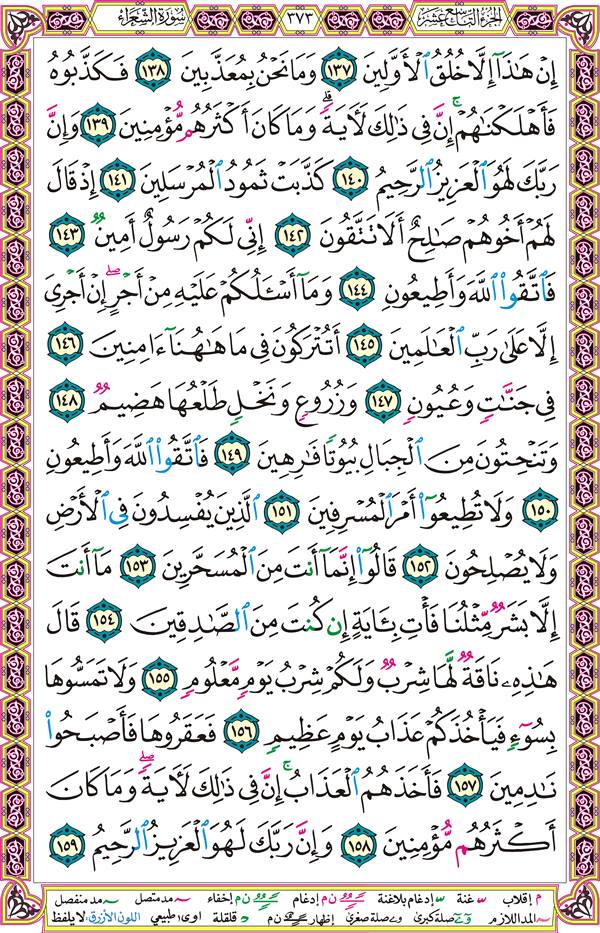 الجزء التاسع عشر ٣٧٣ سورة الشعراء
إِنْ هَٰذَآ إِلَّا خُلُقُ ٱلْأَوَّلِينَ ١٣٧ وَمَا نَحْنُ بِمُعَذَّبِينَ ١٣٨ فَكَذَّبُوهُ
فَأَهْلَكْنَٰهُمْ ۚ إِنَّ فِى ذَٰلِكَ لَءَايَةً ۖ وَمَا كَانَ أَكْثَرُهُم مُّؤْمِنِينَ ١٣٩ وَإِنَّ
رَبَّكَ لَهُوَ ٱلْعَزِيزُ ٱلرَّحِيمُ ١٤٠ كَذَّبَتْ ثَمُودُ ٱلْمُرْسَلِينَ ١٤١ إِذْ قَالَ
لَهُمْ أَخُوهُمْ صَٰلِحٌ أَلَا تَتَّقُونَ ١٤٢ إِنِّى لَكُمْ رَسُولٌ أَمِينٌ ١٤٣
فَٱتَّقُوا۟ ٱللَّهَ وَأَطِيعُونِ ١٤٤ وَمَآ أَسْـَٔلُكُمْ عَلَيْهِ مِنْ أَجْرٍ ۖ إِنْ أَجْرِىَ
إِلَّا عَلَىٰ رَبِّ ٱلْعَٰلَمِينَ ١٤٥ أَتُتْرَكُونَ فِى مَا هَٰهُنَآ ءَامِنِينَ ١٤٦
فِى جَنَّٰتٍ وَعُيُونٍ ١٤٧ وَزُرُوعٍ وَنَخْلٍ طَلْعُهَا هَضِيمٌ ١٤٨
وَتَنْحِتُونَ مِنَ ٱلْجِبَالِ بُيُوتًا فَٰرِهِينَ ١٤٩ فَٱتَّقُوا۟ ٱللَّهَ وَأَطِيعُونِ
١٥٠ وَلَا تُطِيعُوٓا۟ أَمْرَ ٱلْمُسْرِفِينَ ١٥١ ٱلَّذِينَ يُفْسِدُونَ فِى ٱلْأَرْضِ
وَلَا يُصْلِحُونَ ١٥٢ قَالُوٓا۟ إِنَّمَآ أَنتَ مِنَ ٱلْمُسَحَّرِينَ ١٥٣ مَآ أَنتَ
إِلَّا بَشَرٌ مِّثْلُنَا فَأْتِ بِـَٔايَةٍ إِن كُنتَ مِنَ ٱلصَّٰدِقِينَ ١٥٤ قَالَ
هَٰذِهِۦ نَاقَةٌ لَّهَا شِرْبٌ وَلَكُمْ شِرْبُ يَوْمٍ مَّعْلُومٍ ١٥٥ وَلَا تَمَسُّوهَا
بِسُوٓءٍ فَيَأْخُذَكُمْ عَذَابُ يَوْمٍ عَظِيمٍ ١٥٦ فَعَقَرُوهَا فَأَصْبَحُوا۟
نَٰدِمِينَ ١٥٧ فَأَخَذَهُمُ ٱلْعَذَابُ ۗ إِنَّ فِى ذَٰلِكَ لَءَايَةً ۖ وَمَا كَانَ
أَكْثَرُهُم مُّؤْمِنِينَ ١٥٨ وَإِنَّ رَبَّكَ لَهُوَ ٱلْعَزِيزُ ٱلرَّحِيمُ ١٥٩
م إقلاب غنة إدغام بلاغنة ن م إدغام ن م إخفاء مد متصل مد منفصل
المد اللازم و ے صلة كبرى و ے صلة صغرى إظهار ن م قلقلة اوى طبيعي اللون الأزرق: لا يلفظ